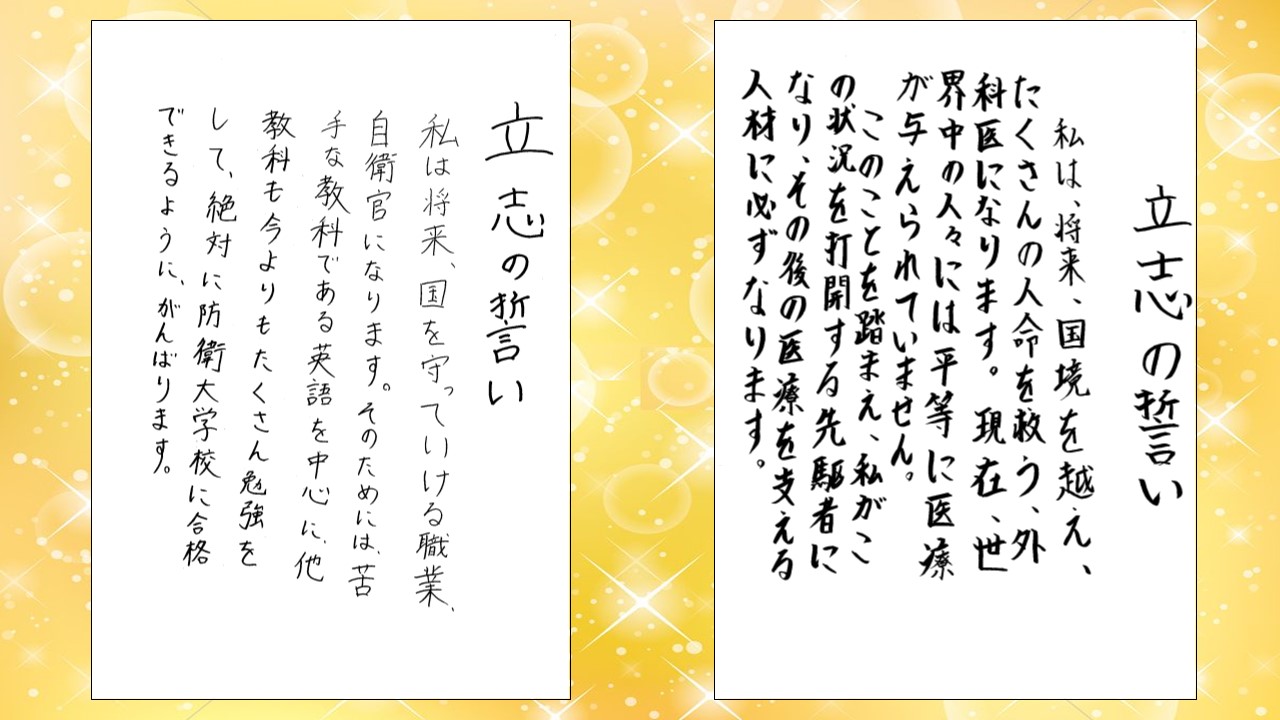 立志の誓い
私は将来、国を守っていける職業、
自衛官になります。そのためには、苦
手な教科である英語を中心に、他
教科も今よりもたくさん勉強を
して、絶対に防衛大学校に合格
できるように、がんばります。
立志の誓い
私は、将来、国境を越え、
たくさんの人命を救う、外
科医になります。現在、世
界中の人々には平等に医療
が与えられていません。
このことを踏まえ、私がこ
の状況を打開する先駆者に
なり、その後の医療を支える
人材に必ずなります。